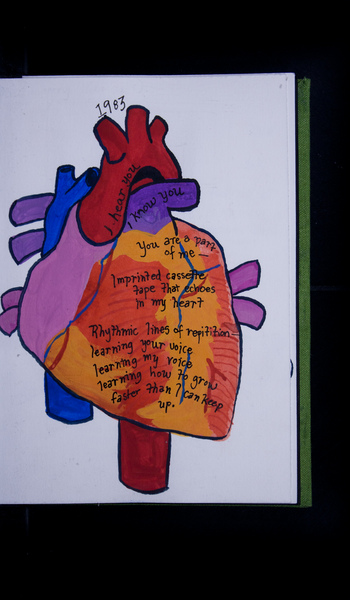 1983
I hear you
I know you
You are a part
of me —
Imprinted cassette
tape that echoes
in my heart
Rhythmic lines of repitition—
learning your voice
learning my voice
learning how to grow
faster than I can keep
up.